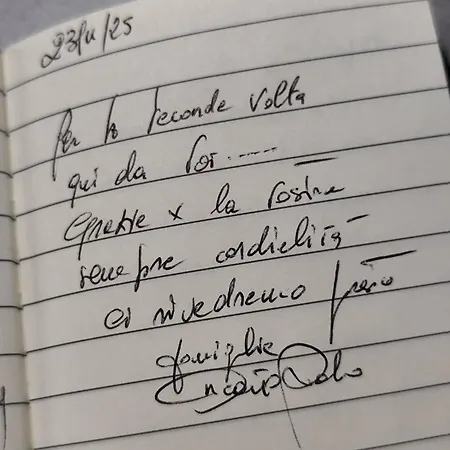 Per la seconda volta
qui da voi......
Grazie x la vostra
sempre cordialità
ci rivedremo
famiglia